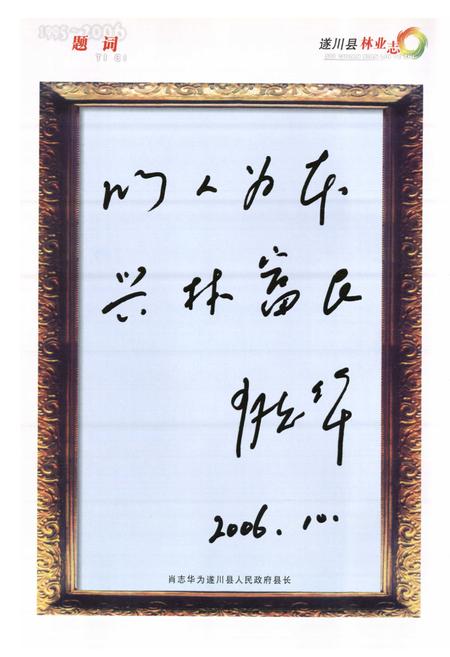 1995-2006
题词
TI CI
遂川县林业志
以人为本
兴林富民
肖志华
2006.10.
肖志华为遂川县人民政府县长